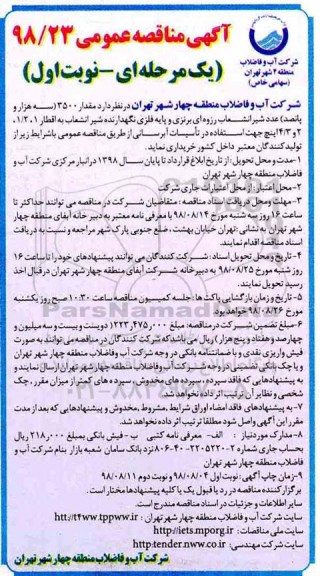 آگهی مناقصه عمومی ۹۸/۲۳
(یک مرحله‌ای - نوبت اول)
شرکت آب و فاضلاب
منطقه ۴ شهر تهران
(سهامی خاص)
شرکت آب و فاضلاب منطقه چهار شهر تهران در نظر دارد مقدار ۳۵۰۰ (سه هزار و
پانصد) عدد شیر انشعاب رزوه‌ای برنزی و پایه فلزی نگهدارنده شیر انشعاب به اقطار ۱، ۱/۲،
۳/۴ و ۲ اینچ جهت استفاده در تأسیسات آبرسانی از طریق مناقصه عمومی باشرایط زیر از
تولیدکنندگان معتبر داخل کشور خریداری نماید.
۱-مدت و محل تحویل: از تاریخ ابلاغ قرارداد تا پایان سال ۱۳۹۸ درانبار مرکزی شرکت آب و
فاضلاب منطقه چهار شهر تهران
۲- محل اعتبار: از محل اعتبارات جاری شرکت
۳- مهلت و محل دریافت اسناد مناقصه: متقاضیان شرکت در مناقصه می توانند حداکثر تا
ساعت ۱۶ روز سه شنبه مورخ ۹۸/۰۸/۱۴ با معرفی نامه معتبر به دبیرخانه آبفای منطقه چهار
شهر تهران به نشانی: تهران خیابان بهشت، ضلع جنوبی پارک شهر مراجعه و نسبت به دریافت
اسناد مناقصه اقدام نمایند.
۴- تاریخ و محل تحویل اسناد: شرکت کنندگان می توانند پیشنهادهای خود را تا ساعت ۱۶
روز شنبه مورخ ۹۸/۰۸/۲۵ به دبیرخانه شرکت آبفای منطقه چهار شهر تهران در قبال اخذ
رسید تحویل نمایند.
۵- تاریخ و زمان بازگشایی پاکت ها: جلسه کمیسیون مناقصه ساعت ۱۰:۳۰ صبح روز یکشنبه
مورخ ۹۸/۰۸/۲۶ خواهد بود.
۶-مبلغ تضمین شرکت در مناقصه: مبلغ ۲۲۳,۴۷۵,۰۰۰ (دویست و بیست و سه میلیون و
چهارصد و هفتاد و پنج هزار) ریال می باشد که شرکت کنندگان در مناقصه می توانند به صورت
فیش واریزی نقدی و یا ضمانتنامه بانکی در وجه شرکت آب و فاضلاب منطقه چهار شهر تهران
و یا چک بانکی تضمینی در وجه شرکت آب و فاضلاب منطقه چهار شهر تهران ارسال نمایند و
به پیشنهادهایی که فاقد سپرده، سپرده های مخدوش، سپرده های کمتر از میزان مقرر، چک
شخصی و نظایر آن ترتیب اثر داده نخواهد شد.
۷- به پیشنهادهای فاقد امضاء اوراق شرایط، مشروط، مخدوش و پیشنهادهایی که بعد از مدت
مقرر این آگهی واصل شود مطلقا ترتیب اثر داده نخواهد شد.
۸-مدارک مورد نیاز: الف- معرفی نامه کتبی ب - فیش بانکی بمبلغ ۲۱۸,۰۰۰ ریال
بحساب جاری شماره نزد بانک سامان شعبه بازار بنام شرکت آب و
فاضلاب منطقه چهار شهر تهران
۹-زمان چاپ آگهی: نوبت اول ۹۸/۰۸/۰۴ و نوبت دوم ۹۸/۰۸/۱۱
برگزار کننده مناقصه در رد یا قبول یک یا کلیه پیشنهادها مختار است.
سایر اطلاعات و جزئیات در اسناد مناقصه مندرج است.
سایت شرکت آب و فاضلاب منطقه چهار شهر تهران: htt://t4ww.tppww.ir
سایت ملی مناقصات: http://iets.mporg.ir
سایت شرکت مهندسی: http:tender.nww.co.ir
شرکت آب و فاضلاب منطقه چهار شهر تهران